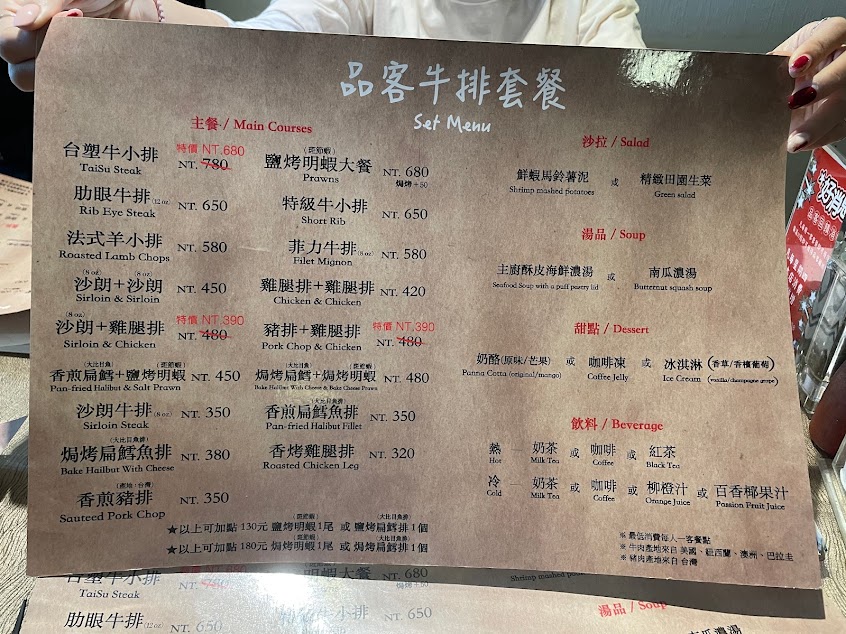 品客牛排套餐
Set Menu
主餐 / Main Courses
台塑牛小排 特價 NT.680 NT. 780
TaiSu Steak
肋眼牛排(12 oz) NT. 650
Rib Eye Steak
法式羊小排 NT. 580
Roasted Lamb Chops
(8 oz) (8 oz)
沙朗+沙朗 NT. 450
Sirloin & Sirloin
(8 oz)
沙朗+雞腿排 特價 NT.390 NT. 480
Sirloin & Chicken
(大比目魚排) (斑節蝦)
香煎扁鱈+鹽烤明蝦 NT. 450
Pan-fried Halibut & Salt Prawn
沙朗牛排(8 oz) NT. 350
Sirloin Steak
(大比目魚排)
焗烤扁鱈魚排 NT. 380
Bake Hailbut With Cheese
(產地:台灣)
香煎豬排 NT. 350
Sauteed Pork Chop
(斑節蝦)
鹽烤明蝦大餐 NT. 680
Prawns 焗烤+50
特級牛小排 NT. 650
Short Rib
菲力牛排(8 oz) NT. 580
Filet Mignon
雞腿排+雞腿排 NT. 420
Chicken & Chicken
豬排+雞腿排 特價 NT.390 NT. 480
Pork Chop & Chicken
(大比目魚) (斑節蝦)
焗烤扁鱈+焗烤明蝦 NT. 480
Bake Halibut With Cheese & Bake Cheese Prawn
(大比目魚排)
香煎扁鱈魚排 NT. 350
Pan-fried Halibut Fillet
香烤雞腿排 NT. 320
Roasted Chicken Leg
(斑節蝦) (大比目魚排)
★以上可加點 130元 鹽烤明蝦1尾 或 鹽烤扁鱈排1個
(斑節蝦) (大比目魚排)
★以上可加點 180元 焗烤明蝦1尾 或 焗烤扁鱈排1個
沙拉 / Salad
鮮蝦馬鈴薯泥 或 精緻田園生菜
Shrimp mashed potatoes Green salad
湯品 / Soup
主廚酥皮海鮮濃湯 或 南瓜濃湯
Seafood Soup with a puff pastry lid Butternut squash soup
甜點 / Dessert
奶酪(原味/芒果) 或 咖啡凍 或 冰淇淋(香草/香檳葡萄)
Panna Cotta (original/mango) Coffee Jelly Ice Cream (vanilla/champagne grape)
飲料 / Beverage
熱 — 奶茶 或 咖啡 或 紅茶
Hot Milk Tea Coffee Black Tea
冷 — 奶茶 或 咖啡 或 柳橙汁 或 百香椰果汁
Cold Milk Tea Coffee Orange Juice Passion Fruit Juice
※ 最低消費每人一客餐點
※ 牛肉產地來自 美國、紐西蘭、澳洲、巴拉圭
※ 豬肉產地來自 台灣
台塑牛小排 NT.
TaiSu Steak
明蝦大餐 NT. 680
Prawns 焗烤+50
肋眼牛排(12 oz) NT. 650
Rib Eye Steak
特級牛小排 NT. 650
Shrimp mashed
湯品 / Soup
南瓜濃湯